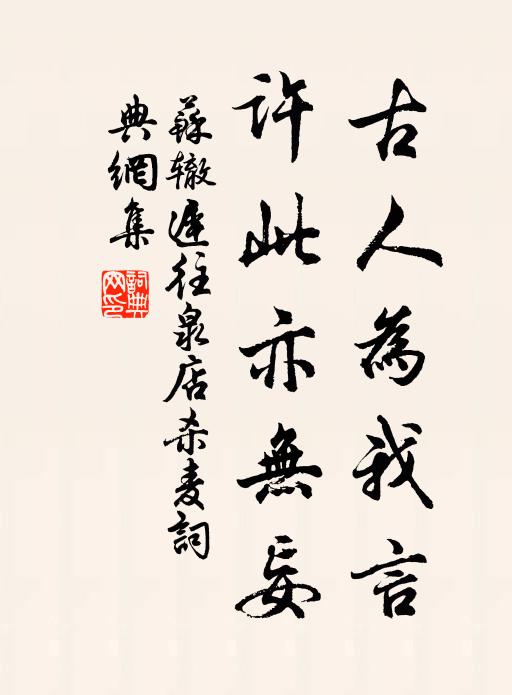 古人為我言
許此亦無妄
蘇辙遲往泉店杀麦詞
典網集
詞典
网印